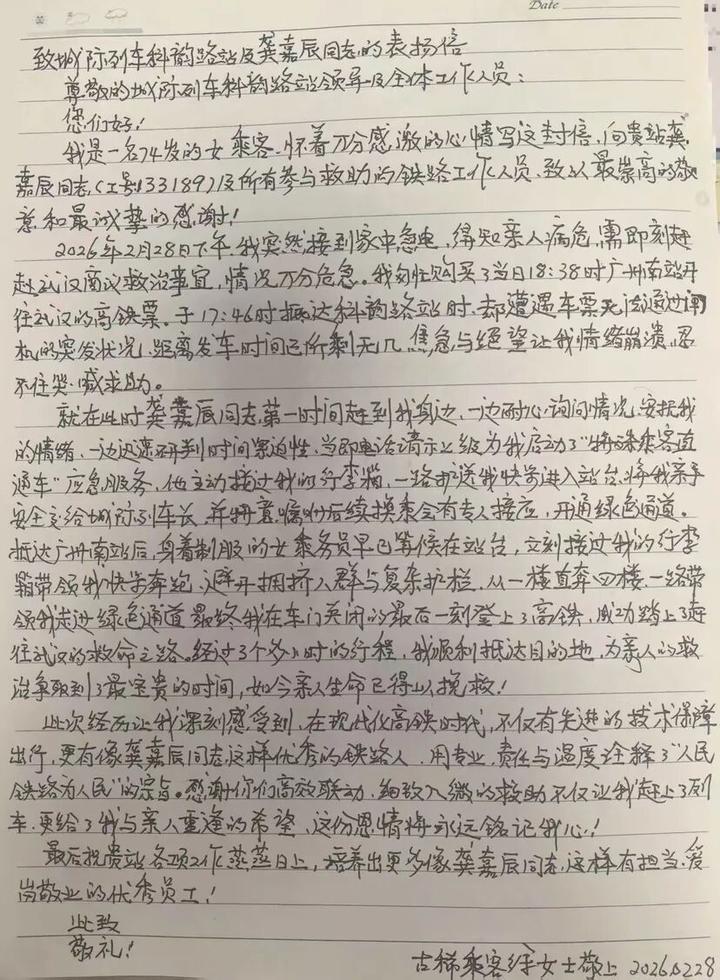 Date
致城际列车科韵路站及龚嘉辰同志的表扬信
尊敬的城际列车科韵路站领导及全体工作人员：
您们好！
我是一名74岁的女乘客，怀着万分感激的心情写这封信，向贵站龚
嘉辰同志（工号：33189）及所有参与救助的铁路工作人员，致以最崇高的敬
意和最诚挚的感谢！
2026年2月28日下午，我突然接到家中急电，得知亲人病危，需即刻赶
赴武汉商议救治事宜，情况万分危急。我匆忙购买了当日18:38时广州南站开
往武汉的高铁票。于17:46时抵达科韵路站时，却遭遇车票无法通过闸
机的突发状况，距离发车时间已所剩无几，焦急与绝望让我情绪崩溃，忍
不住哭喊求助。
就在此时龚嘉辰同志第一时间赶到我身边，一边耐心询问情况，安抚我
的情绪，一边迅速研判时间紧迫性，当即电话请示上级为我启动了“特殊乘客直
通车”应急服务，他主动接过我的行李箱，一路护送我快步进入站台，将我亲手
安全交给城际列车长，并特意嘱咐后续换乘会有专人接应，开通绿色通道。
抵达广州南站后，身着制服的女乘务员早已等候在站台，立刻接过我的行李
箱带领我快步奔跑，避开拥挤人群与复杂护栏，从一楼直奔四楼，一路带
领我走进绿色通道，最终我在车门关闭的最后一刻登上了高铁，成功踏上了赶
往武汉的救命之路。经过3个多小时的行程，我顺利抵达目的地，为亲人的救
治争取到了最宝贵的时间，如今亲人生命已得以挽救！
此次经历让我深刻感受到，在现代化高铁时代，不仅有先进的技术保障
出行，更有像龚嘉辰同志这样优秀的铁路人，用专业、责任与温度诠释了“人民
铁路为人民”的宗旨。感谢你们高效联动，细致入微的救助不仅让我赶上了列
车，更给了我与亲人重逢的希望，这份恩情将永远铭记我心！
最后祝贵站各项工作蒸蒸日上，培养出更多像龚嘉辰同志这样有担当、爱
岗敬业的优秀员工！
此致
敬礼！
古稀乘客徐女士敬上 2026.0228